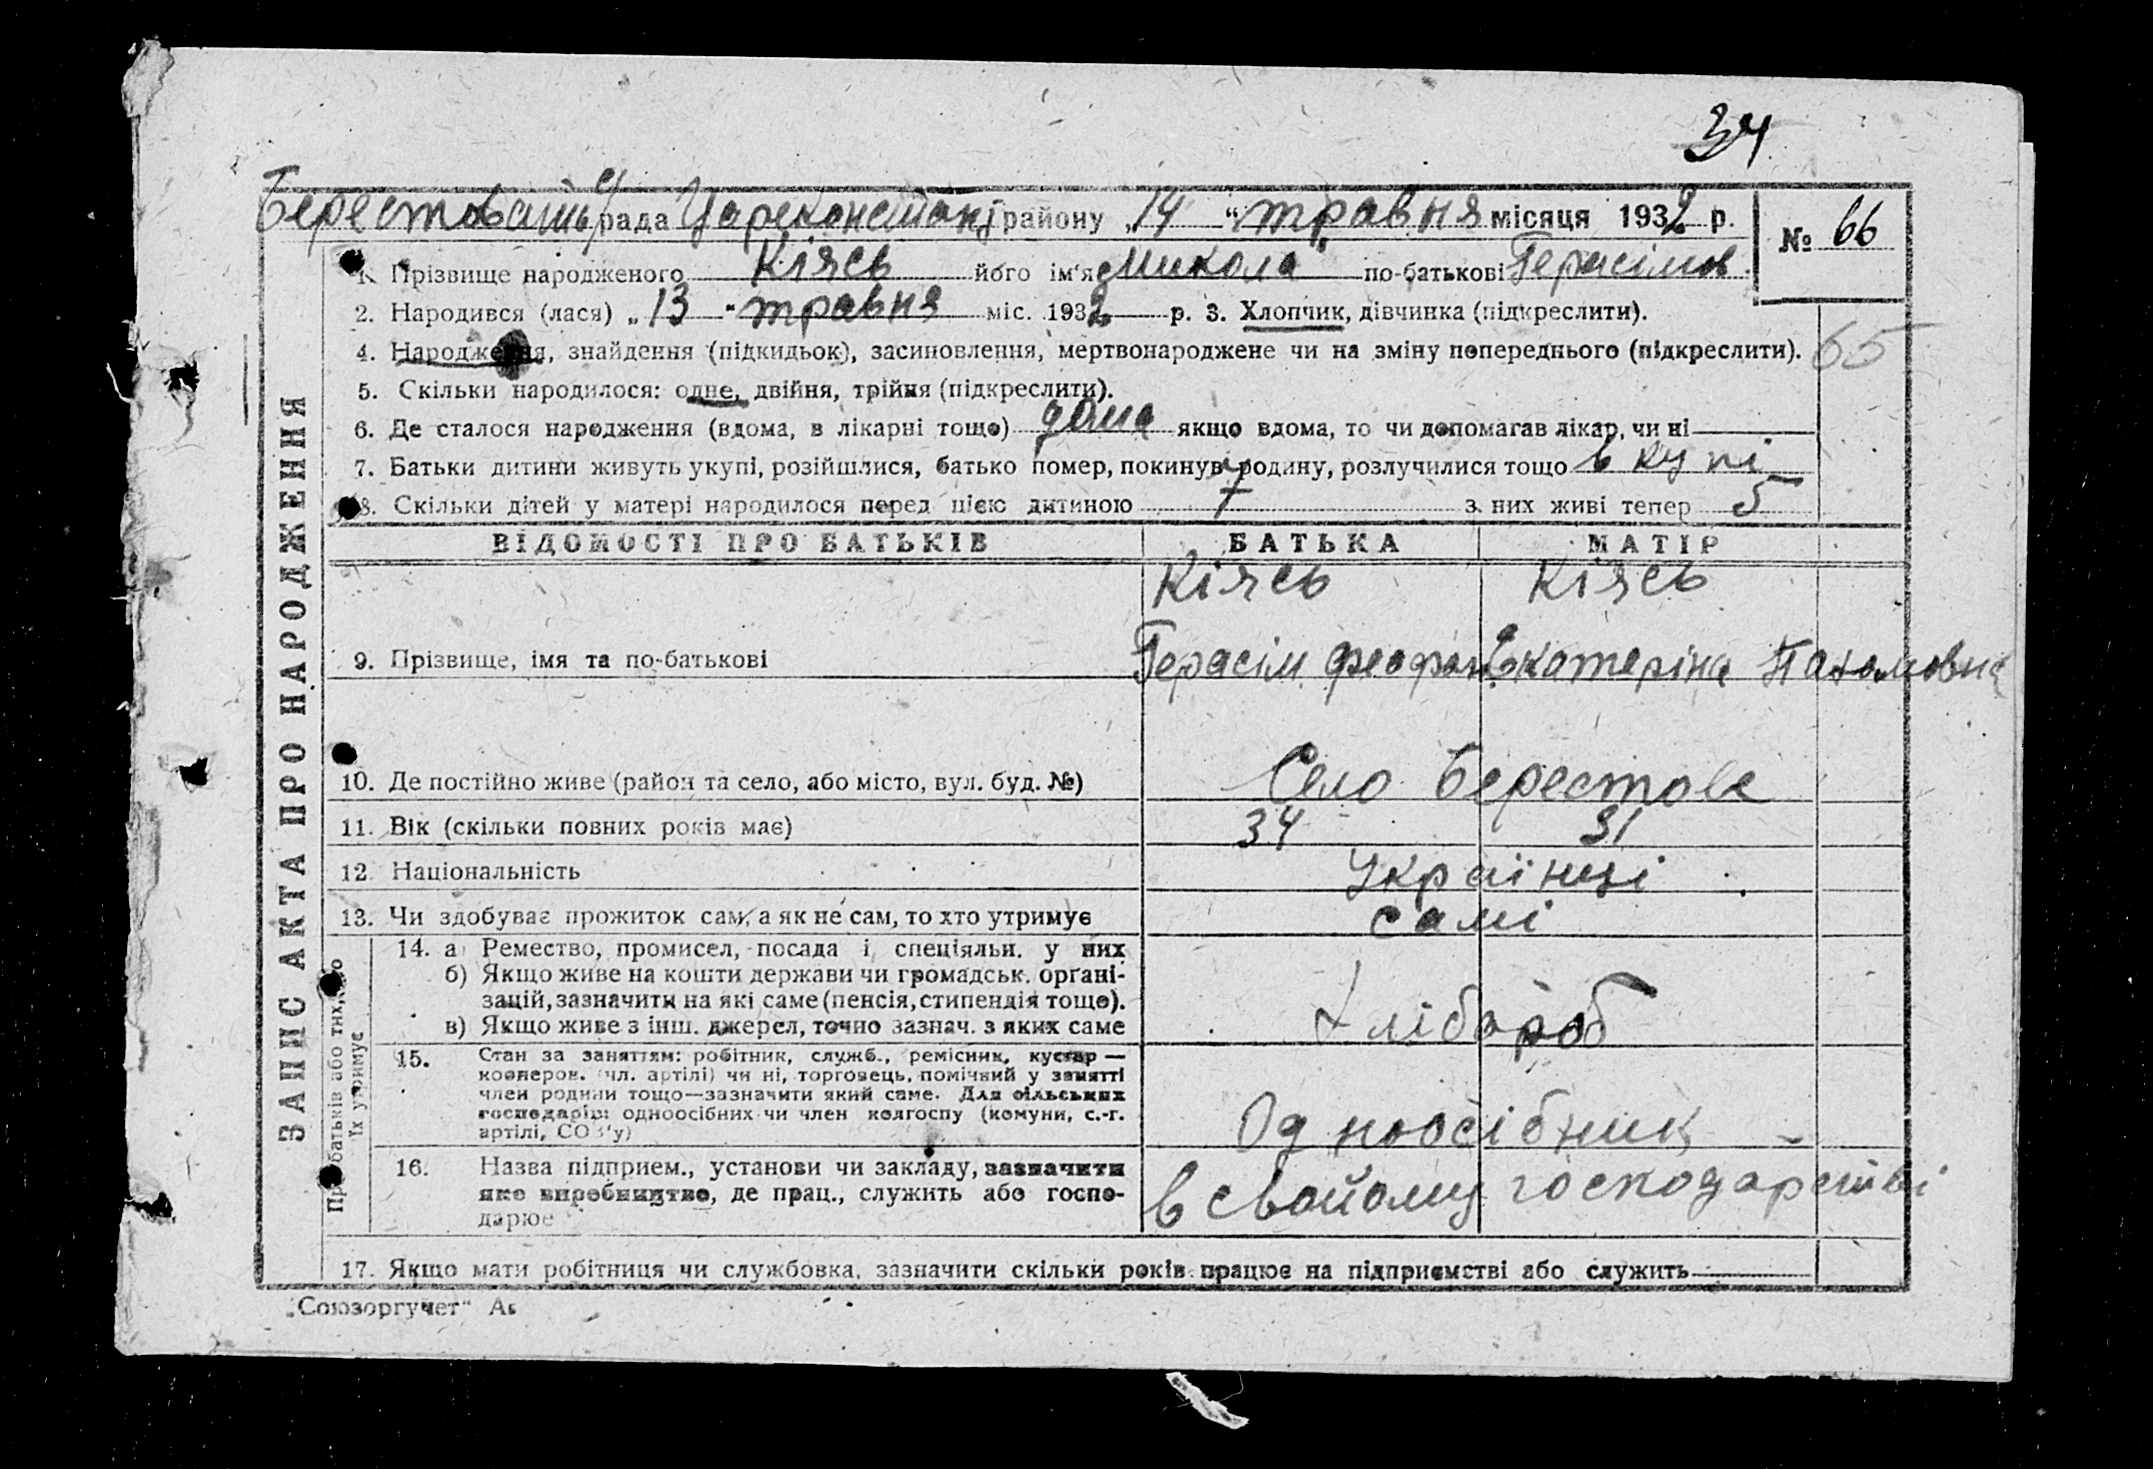 34
Берестовашь с/рада Цареконстант району „14“ травня місяця 1932 р. № 66
1. Прізвище народженого Кіясь його ім'я Микола по-батькові Герасімов
2. Народився (лася) „13“ травня міс. 1932 р. 3. Хлопчик, дівчинка (підкреслити).
4. Народження, знайдення (підкидьок), засиновлення, мертвонароджене чи на зміну попереднього (підкреслити). 65
5. Скільки народилося: одне, двійня, трійня (підкреслити).
6. Де сталося народження (вдома, в лікарні тощо) дома якщо вдома, то чи допомагав лікар, чи ні
7. Батьки дитини живуть укупі, розійшлися, батько помер, покинув родину, розлучилися тощо в купі
8. Скільки дітей у матері народилося перед цією дитиною 7 з них живі тепер 5
ВІДОМОСТІ ПРО БАТЬКІВ БАТЬКА МАТІР
Кіясь Кіясь
9. Прізвище, імя та по-батькові Герасім Феофан Екатеріна Пахомовна
10. Де постійно живе (район та село, або місто, вул. буд. №) Село Берестове
11. Вік (скільки повних років має) 34 31
12. Національність Українці
13. Чи здобуває прожиток сам, а як не сам, то хто утримує самі
14. а) Ремество, промисел, посада і спеціяльн. у них
б) Якщо живе на кошти держави чи громадськ. орґані-
зацій, зазначити на які саме (пенсія, стипендія тощо).
в) Якщо живе з інш. джерел, точно зазнач. з яких саме
Хлібороб
15. Стан за заняттям: робітник, служб., ремісник, кустар —
кооперов. (чл. артілі) чи ні, торговець, помічний у занятті
член родини тощо—зазначити який саме. Для сільських
господарів: одноосібних чи член колгоспу (комуни, с.-г.
артілі, СОЗ'у)
Одноосібник
16. Назва підприєм., установи чи закладу, зазначити
яке виробництво, де прац., служить або госпо-
дарює
в свойому господарстві
17. Якщо мати робітниця чи службовка, зазначити скільки років працює на підприємстві або служить
ЗАПИС АКТА ПРО НАРОДЖЕННЯ
Про батьків або тих, хто
їх утримує
„Союзоргучет“